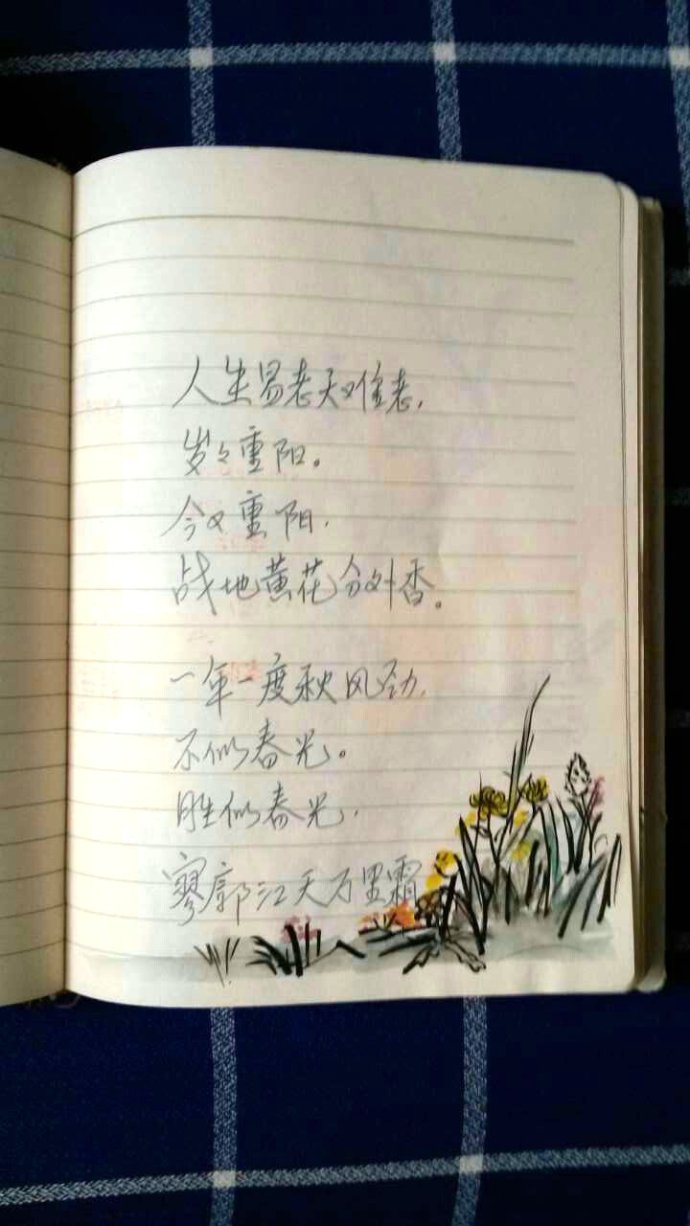 人生易老天难老,
岁々重阳。
今又重阳,
战地黄花分外香。
一年一度秋风劲,
不似春光。
胜似春光,
寥廓江天万里霜